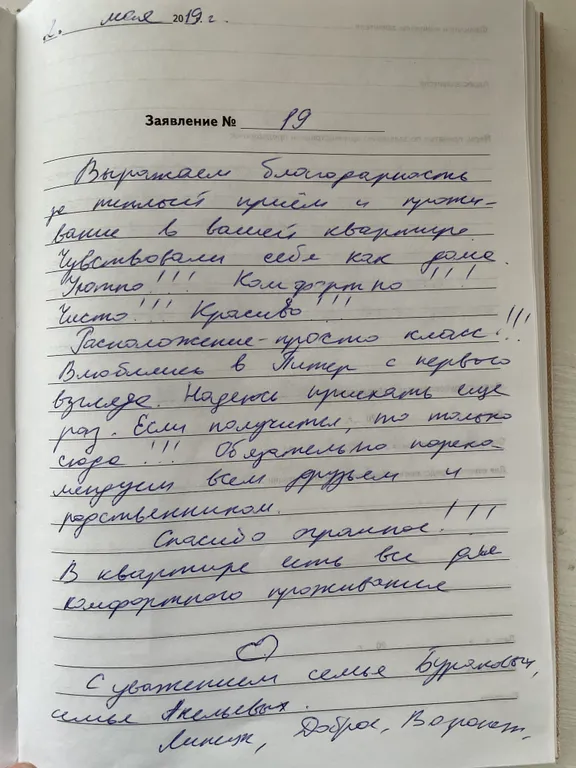 2. мая 2019 г.
Заявление № 19
Выражаем благодарность
за теплый приём и прожи-
вание в вашей квартире.
Чувствовали себя как дома.
Уютно!!! Комфортно!!!
Чисто!!! Красиво!!!
Расположение - просто класс!!!
Влюбились в Питер с первого
взгляда. Надеюсь приехать еще
раз. Если получится, то только
сюда!!! Обязательно пореко-
мендуем всем друзьям и
родственником.
Спасибо огромное!!!
В квартире есть все для
комфортного проживания
С уважением семья
семья
Липецк, Доброе, Воронеж,